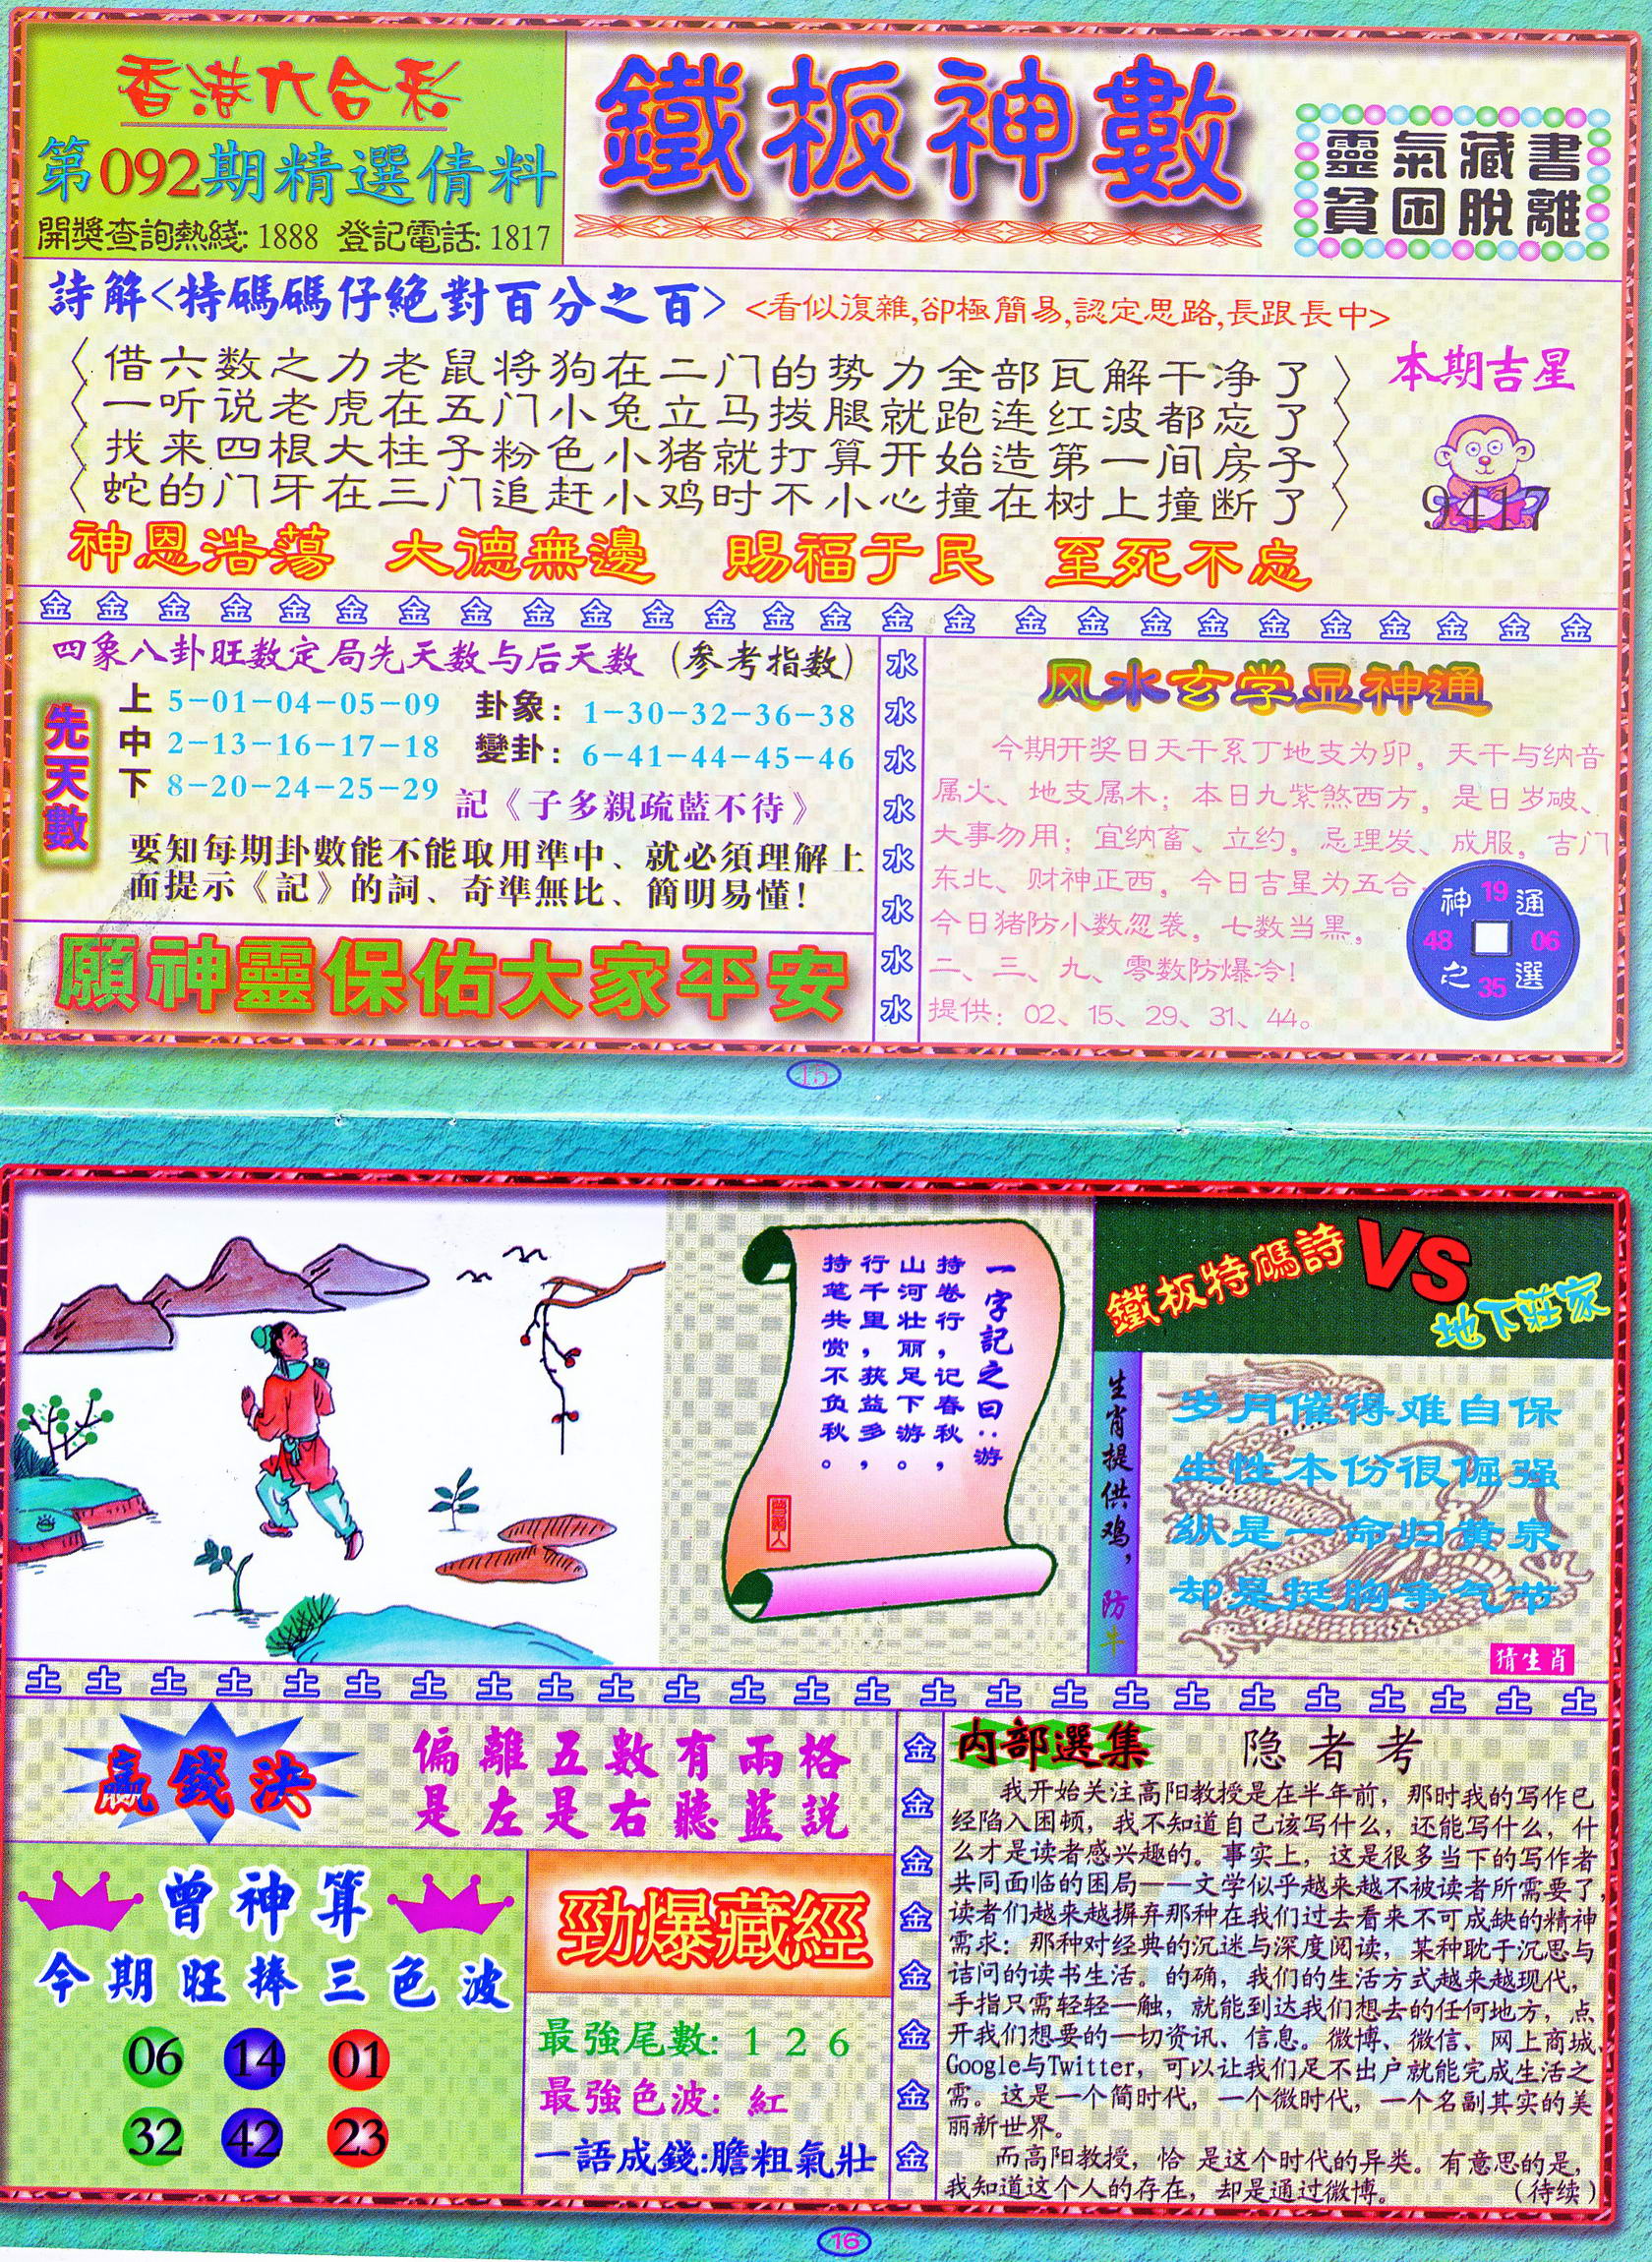 香港六合彩
第092期精選倩料
開獎查詢熱綫: 1888 登記電話: 1817
鐵板神數
靈氣藏書
貧困脫離
詩解<特碼碼仔絕對百分之百> <看似復雜,卻極簡易,認定思路,長跟長中>
借六数之力老鼠将狗在二门的势力全部瓦解干净了
一听说老虎在五门小兔立马拔腿就跑连红波都忘了
找来四根大柱子粉色小猪就打算开始造第一间房子
蛇的门牙在三门追赶小鸡时不小心撞在树上撞断了
本期吉星
9417
神恩浩蕩 大德無邊 賜福于民 至死不忘
金 金 金 金 金 金 金 金 金 金 金 金 金 金 金 金 金 金 金 金 金 金 金 金 金 金
四象八卦旺数定局先天数与后天数 (参考指数)
先天數
上 5-01-04-05-09 卦象: 1-30-32-36-38
中 2-13-16-17-18 變卦: 6-41-44-45-46
下 8-20-24-25-29 記《子多親疏藍不待》
要知每期卦數能不能取用準中、就必須理解上
面提示《記》的詞、奇準無比、簡明易懂!
願神靈保佑大家平安
水
水
水
水
水
水
水
水
风水玄学显神通
今期开奖日天干系丁地支为卯，天干与纳音
属火、地支属木；本日九紫煞西方，是日岁破、
大事勿用；宜纳畜、立约，忌理发、成服，吉门
东北、财神正西，今日吉星为五合
今日猪防小数忽袭，七数当黑，
二、三、九、零数防爆冷!
提供：02、15、29、31、44。
神 19 通
48 06
之 35 選
15
一字記之曰:游
持卷行，记春秋，
山河壮丽足下游。
行千里，获益多，
持笔共赏不负秋。
鐵板特碼詩 VS 地下莊家
生肖提供鸡，防牛
岁月催得难自保
生性本份很倔强
纵是一命归黄泉
却是挺胸争气节
猜生肖
土 土 土 土 土 土 土 土 土 土 土 土 土 土 土 土 土 土 土 土 土 土 土 土 土
贏錢決
偏離五數有兩格
是左是右聽藍説
曾神算
今期旺捧三色波
06 14 01
32 42 23
勁爆藏經
最強尾數: 1 2 6
最強色波: 紅
一語成錢:膽粗氣壯
金
金
金
金
金
金
金
金
内部選集 隐者考
我开始关注高阳教授是在半年前，那时我的写作已
经陷入困顿，我不知道自己该写什么，还能写什么，什
么才是读者感兴趣的。事实上，这是很多当下的写作者
共同面临的困局——文学似乎越来越不被读者所需要了，
读者们越来越摒弃那种在我们过去看来不可成缺的精神
需求：那种对经典的沉迷与深度阅读，某种耽于沉思与
诘问的读书生活。的确，我们的生活方式越来越现代，
手指只需轻轻一触，就能到达我们想去的任何地方，点
开我们想要的一切资讯、信息。微博、微信、网上商城、
Google与Twitter，可以让我们足不出户就能完成生活之
需。这是一个简时代，一个微时代，一个名副其实的美
丽新世界。
而高阳教授，恰 是这个时代的异类。有意思的是，
我知道这个人的存在，却是通过微博。 （待续）
16